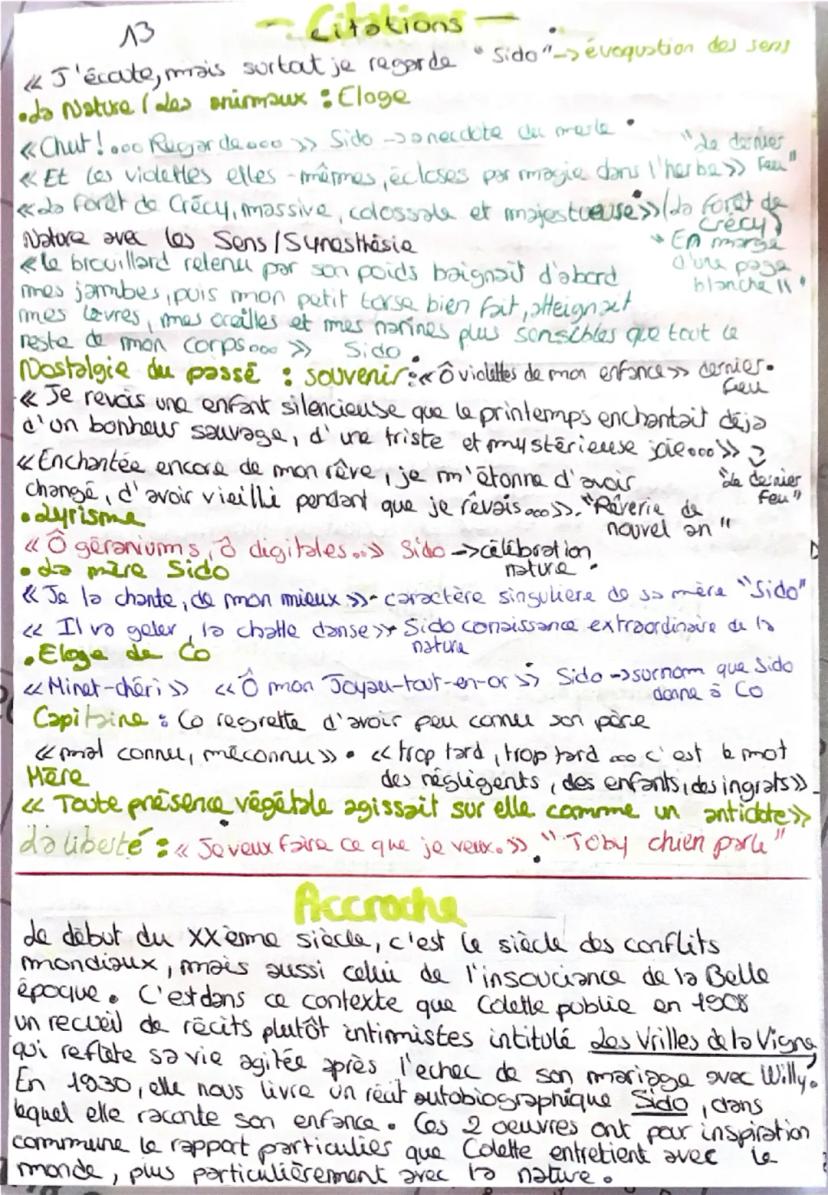 13
- Citations -
« J'écoute, mais surtout je regarde "Sido" -> évoquation des sens
• La Nature / les animaux : Eloge
« Chut !... Regarde... » Sido -> anecdote du merle •
« Et les violettes elles-mêmes, écloses par magie dans l'herbe » "Le dernier feu"
« La forêt de Crécy, massive, colossale et majestueuse » (La forêt de Crécy)
Nature avec les Sens / Synesthésie
• En marge d'une page blanche II •
« le brouillard retenu par son poids baignait d'abord
mes jambes, puis mon petit torse bien fait, atteignait
mes lèvres, mes oreilles et mes narines plus sensibles que tout le
reste de mon corps... » Sido •
Nostalgie du passé : souvenir : « Ô violettes de mon enfance » dernier feu •
« Je revois une enfant silencieuse que le printemps enchantait déjà
d'un bonheur sauvage, d'une triste et mystérieuse joie... »
"Le dernier feu"
« Enchantée encore de mon rêve, je m'étonne d'avoir
changé, d'avoir vieilli pendant que je rêvais... » - "Rêverie de nouvel an"
• Lyrisme
« Ô géraniums, ô digitales.. » Sido -> célébration nature •
• La mère Sido
« Je la chante, de mon mieux » - caractère singuliere de sa mère "Sido"
« Il va geler, la chatte danse » Sido conaissance extraordinaire de la nature
• Eloge de Co
« Minet-chéri » « Ô mon Joyau-tout-en-or » Sido -> surnom que Sido donne à Co
Capitaine : Co regrette d'avoir peu connu son père
« mal connu, méconnu » • « trop tard, trop tard ... c'est le mot
des négligents, des enfants, des ingrats »
Mère
« Toute présence végétale agissait sur elle comme un antidote »
La liberté : « Je veux faire ce que je veux. » "Toby chien parle"
Accroche
Le début du XXème siècle, c'est le siècle des conflits
mondiaux, mais aussi celui de l'insouciance de la Belle
époque. C'est dans ce contexte que Colette publie en 1908
un recueil de récits plutôt intimistes intitulé Les Vrilles de la Vigne,
qui reflète sa vie agitée après l'echec de son mariage avec Willy.
En 1930, elle nous livre un récit autobiographique Sido, dans
lequel elle raconte son enfance. Ces 2 oeuvres ont pour inspiration
commune le rapport particulies que Colette entretient avec le
monde, plus particulièrement avec la nature.